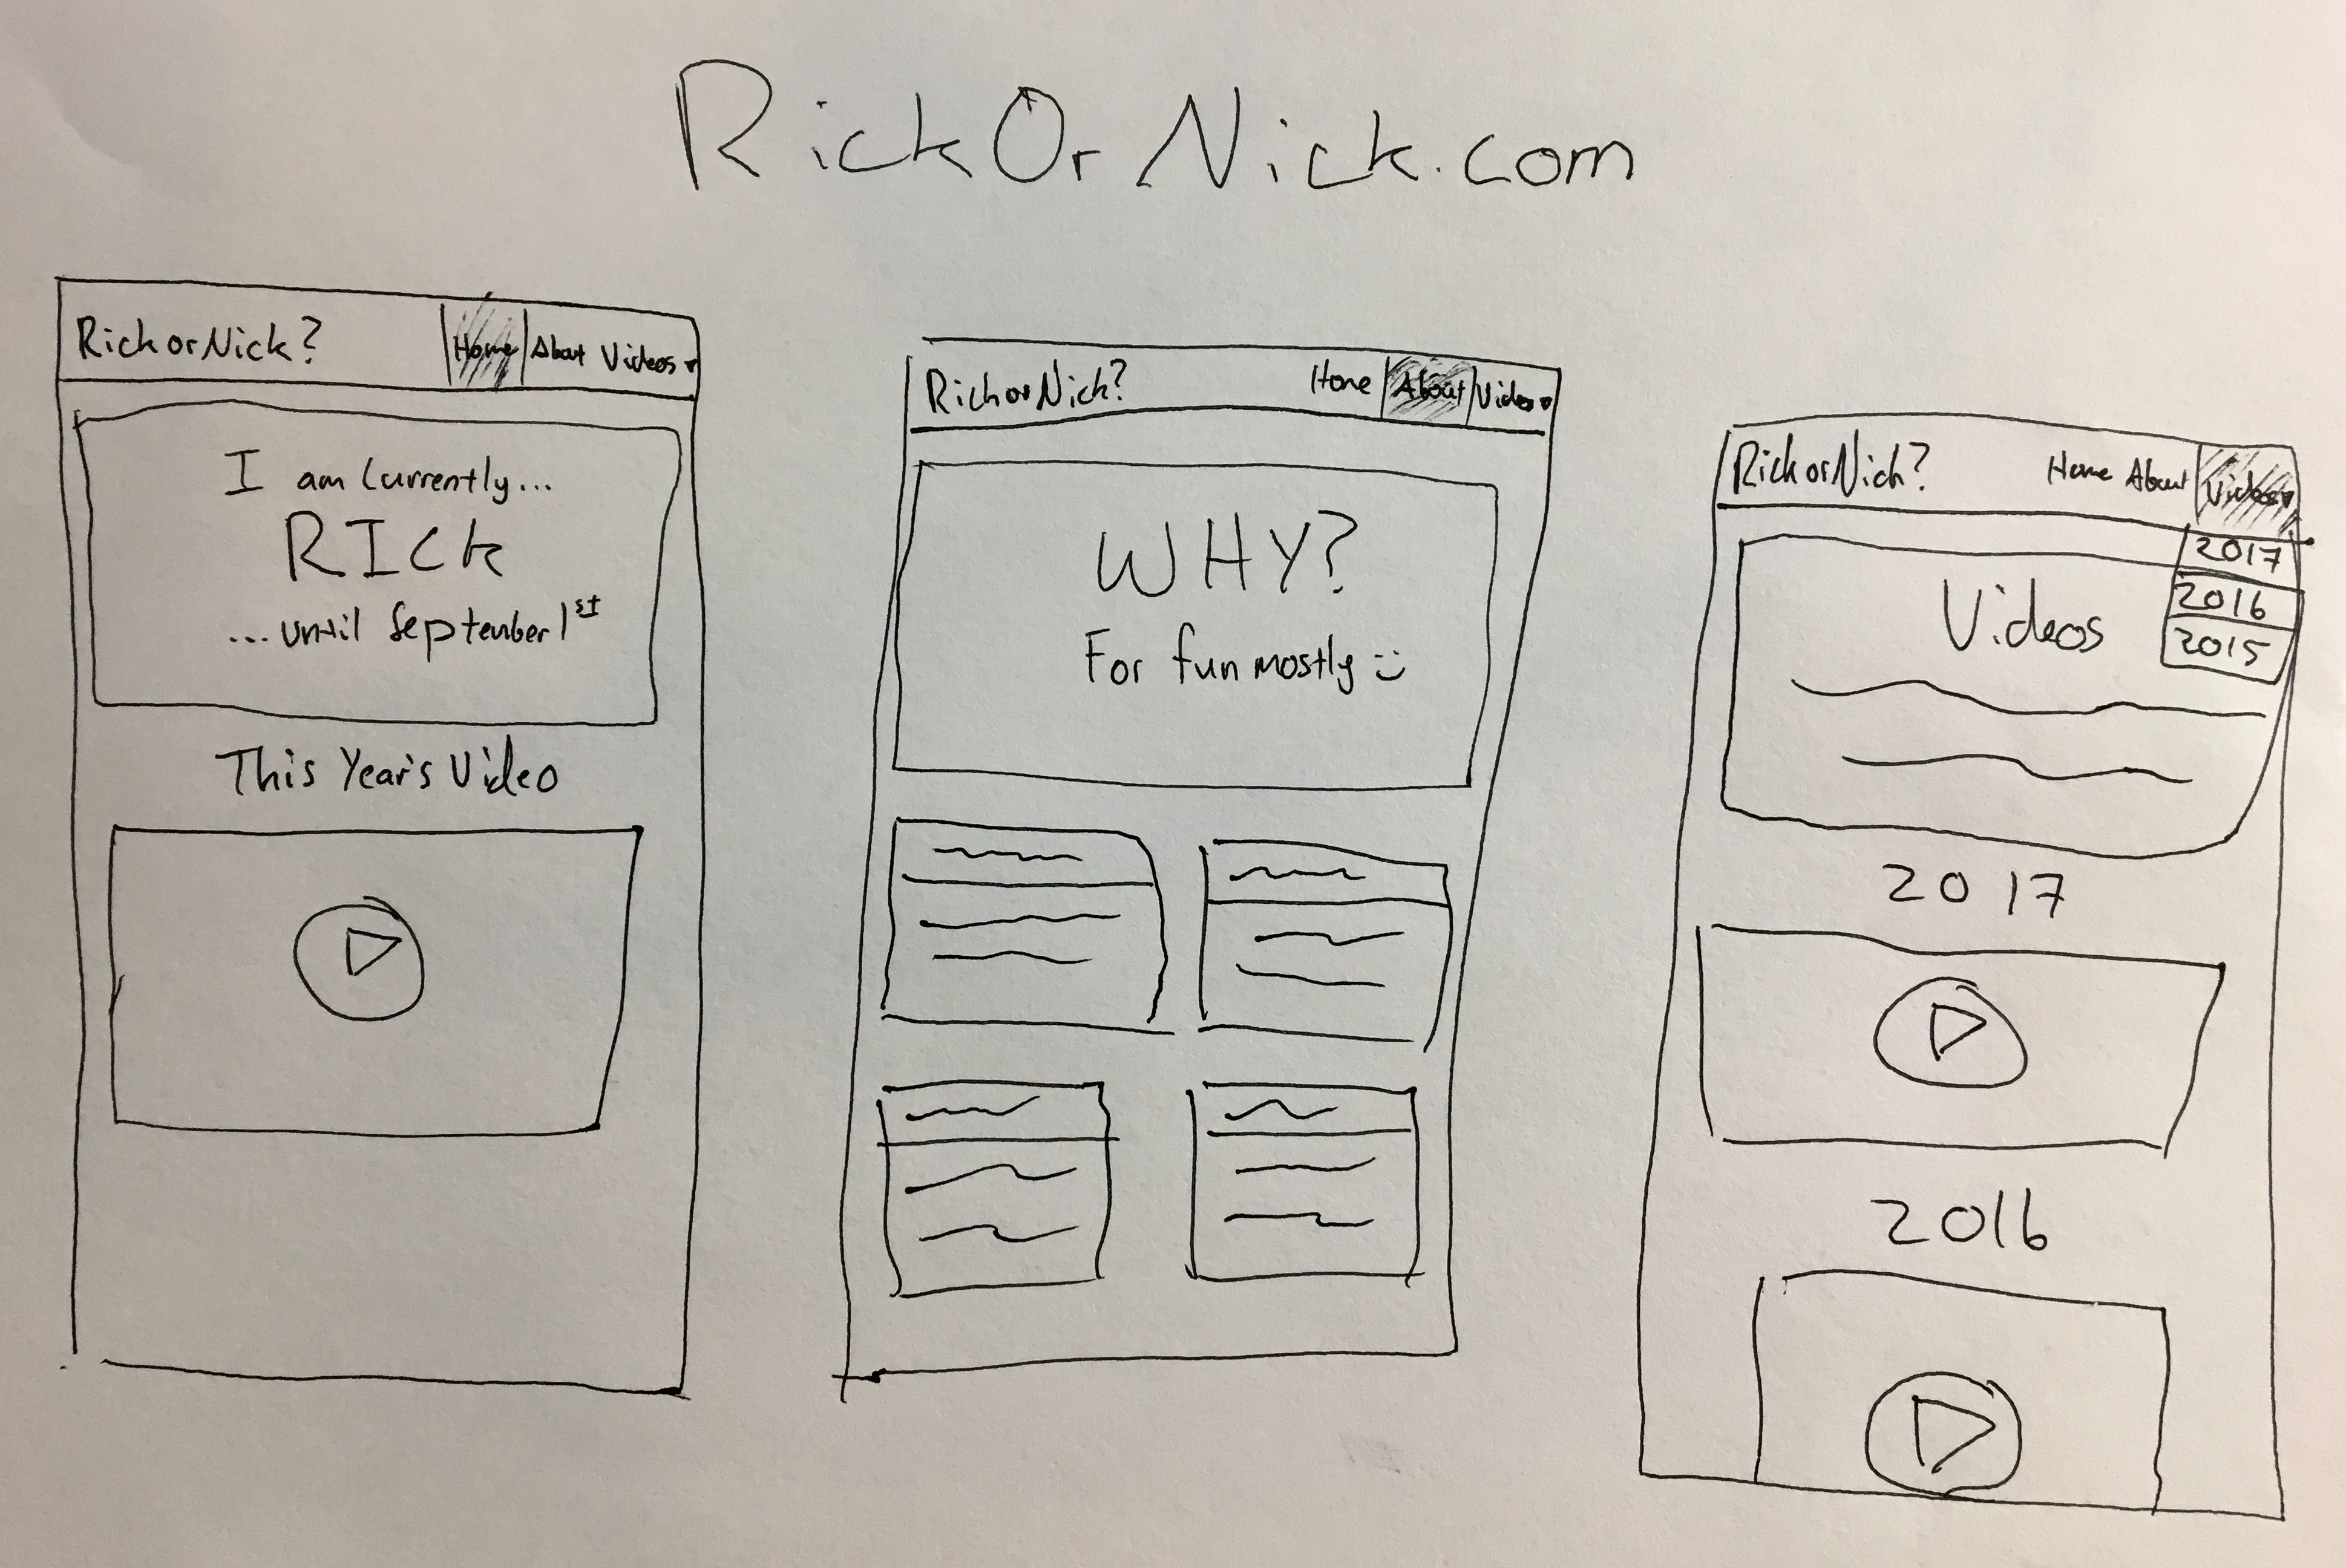 RickOrNick.com
Rick or Nick? Home About Videos
I am Currently...
RICK
...until September 1st
This Year's Video
Rick or Nick? Home About Videos
WHY?
For fun mostly :)
Rick or Nick? Home About Videos
2017
2016
2015
Videos
2017
2016